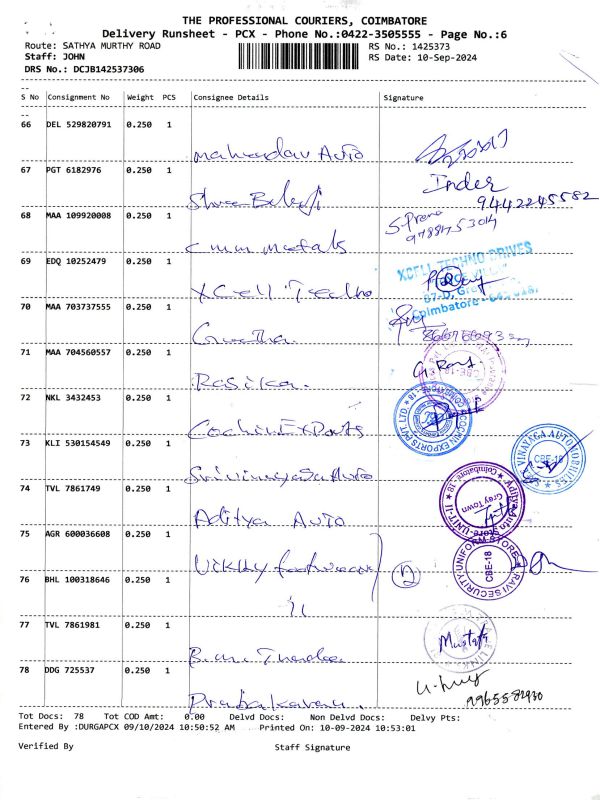 THE PROFESSIONAL COURIERS, COIMBATORE
Delivery Runsheet - PCX - Phone No.:0422-3505555 - Page No.:6
Route: SATHYA MURTHY ROAD RS No.: 1425373
Staff: JOHN RS Date: 10-Sep-2024
DRS No.: DCJB142537306
S No Consignment No Weight PCS Consignee Details Signature
66 DEL 529820791 0.250 1
Mahadev Auto
67 PGT 6182976 0.250 1 Inder
Shree Balaji 9442245582
68 MAA 109920008 0.250 1 S. Prema
cmm metals
69 EDQ 10252479 0.250 1 XCELL TECHNO DRIVES
XCell Techno
70 MAA 703737555 0.250 1 Coimbatore
71 MAA 704560557 0.250 1
Rasika
72 NKL 3432453 0.250 1
Cochin Exports
73 KLI 530154549 0.250 1 VINAYAGA AUTO CBE-18
Sri Vinayaga Auto
74 TVL 7861749 0.250 1 Gray Town
Aditya Auto
75 AGR 600036608 0.250 1 RAVI SECURITY UNIFORM STORE CBE-18
Vikky footwear
76 BHL 100318646 0.250 1 2
"
77 TVL 7861981 0.250 1 Mustafa
78 DDG 725537 0.250 1
Prabakaran 9965582930
Tot Docs: 78 Tot COD Amt: 0.00 Delvd Docs: Non Delvd Docs: Delvy Pts:
Entered By :DURGAPCX 09/10/2024 10:50:52 AM Printed On: 10-09-2024 10:53:01
Verified By Staff Signature